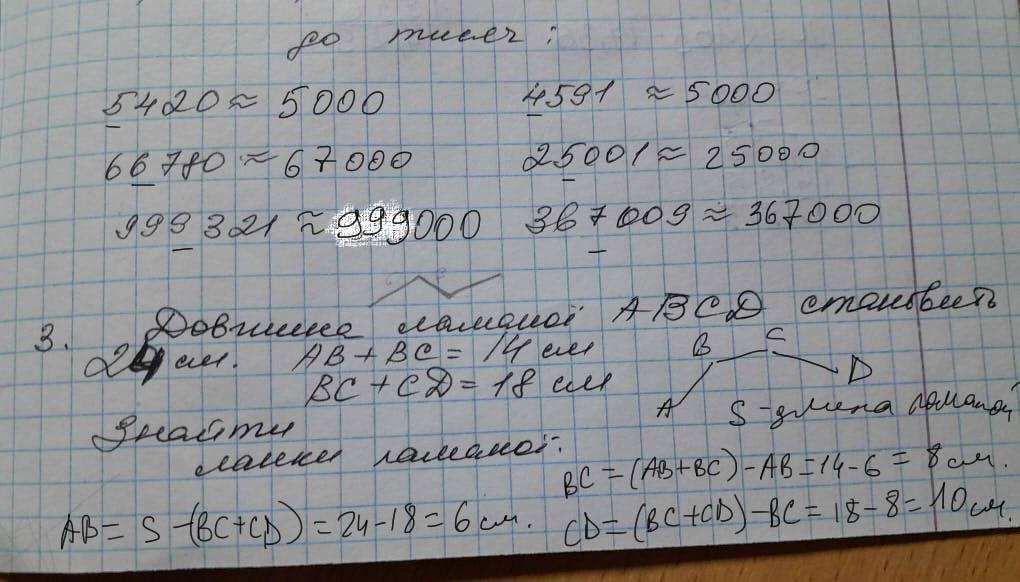 до тисяч:
5420 ≈ 5000 4591 ≈ 5000
66780 ≈ 67000 25001 ≈ 25000
999321 ≈ 999000 367009 ≈ 367000
3. Довжина ламаної ABCD становить
24 см. AB + BC = 14 см
BC + CD = 18 см
B C
A D
S - длина ломаной
Знайти
ланки ламаної.
BC = (AB+BC) - AB = 14 - 6 = 8 см.
AB = S - (BC+CD) = 24 - 18 = 6 см.
CD = (BC+CD) - BC = 18 - 8 = 10 см.